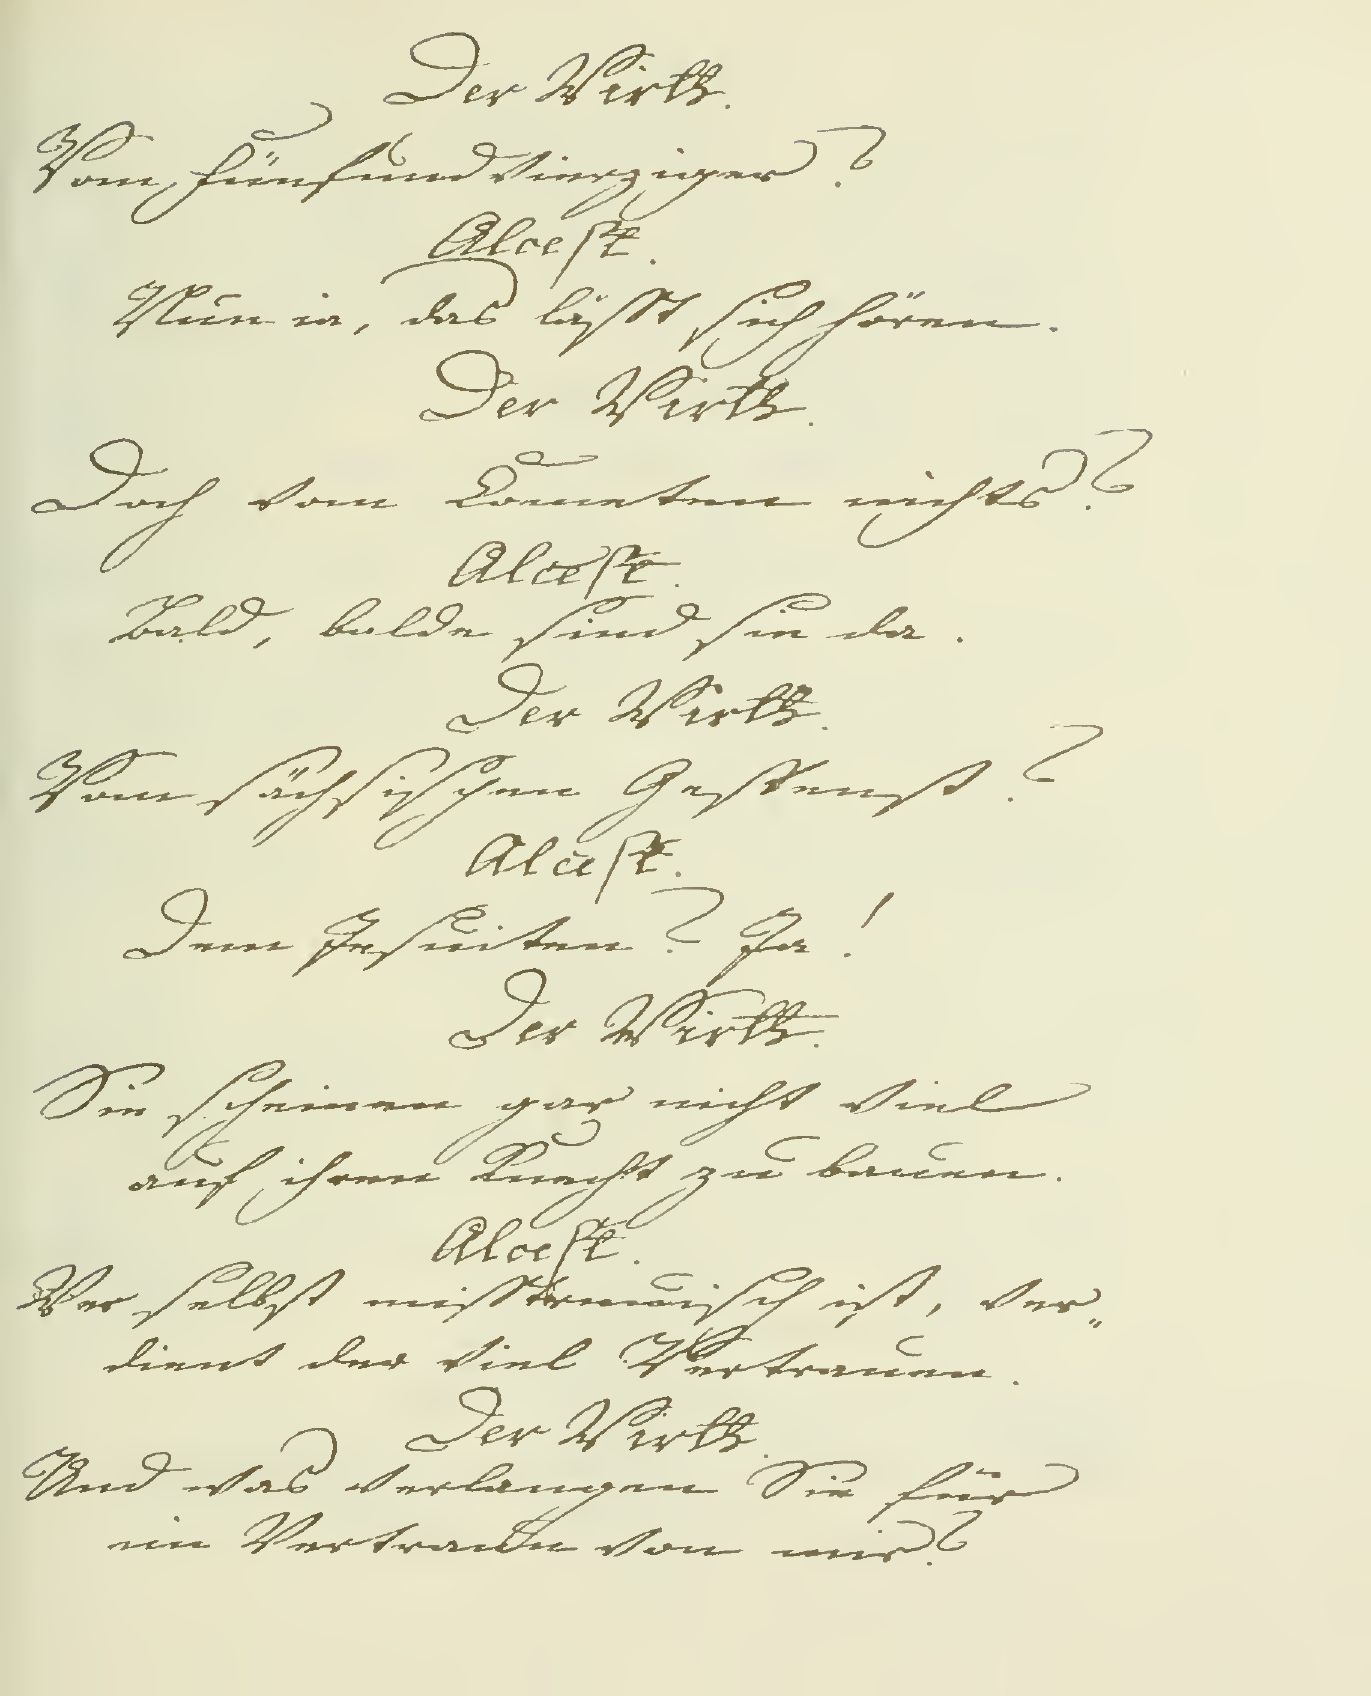 Der Wirth.
Vom fünfundvierziger?
Alceste.
Nun ia, das lässt sich hören.
Der Wirth.
Doch vom Cometen nichts?
Alceste.
Bald, balde sind sie da.
Der Wirth.
Vom sächsischen Gespenst?
Alceste.
Dem Jesuiten? Ja!
Der Wirth.
Sie scheinen gar nicht viel
auf ihren Knecht zu bauen.
Alceste.
Wer selbst misstrauisch ist, ver„
dient der viel Vertrauen.
Der Wirth.
Und was verlangen Sie für
ein Vertraun von mir?